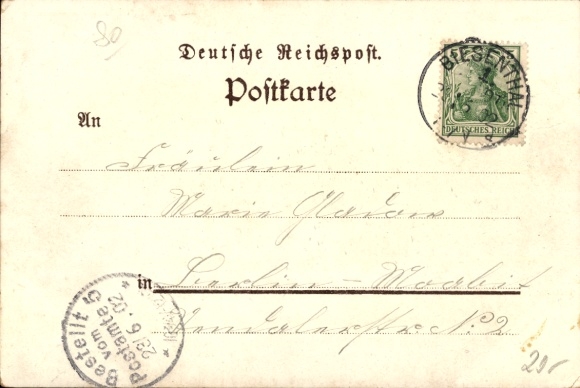 80
Deutsche Reichspost.
Postkarte
BIESENTHAL
DEUTSCHES REICH
An
Fräulein
Marie
in Berlin - Moabit
No. 2
Bestellt
vom
Postamte 5
23/6.02
20-